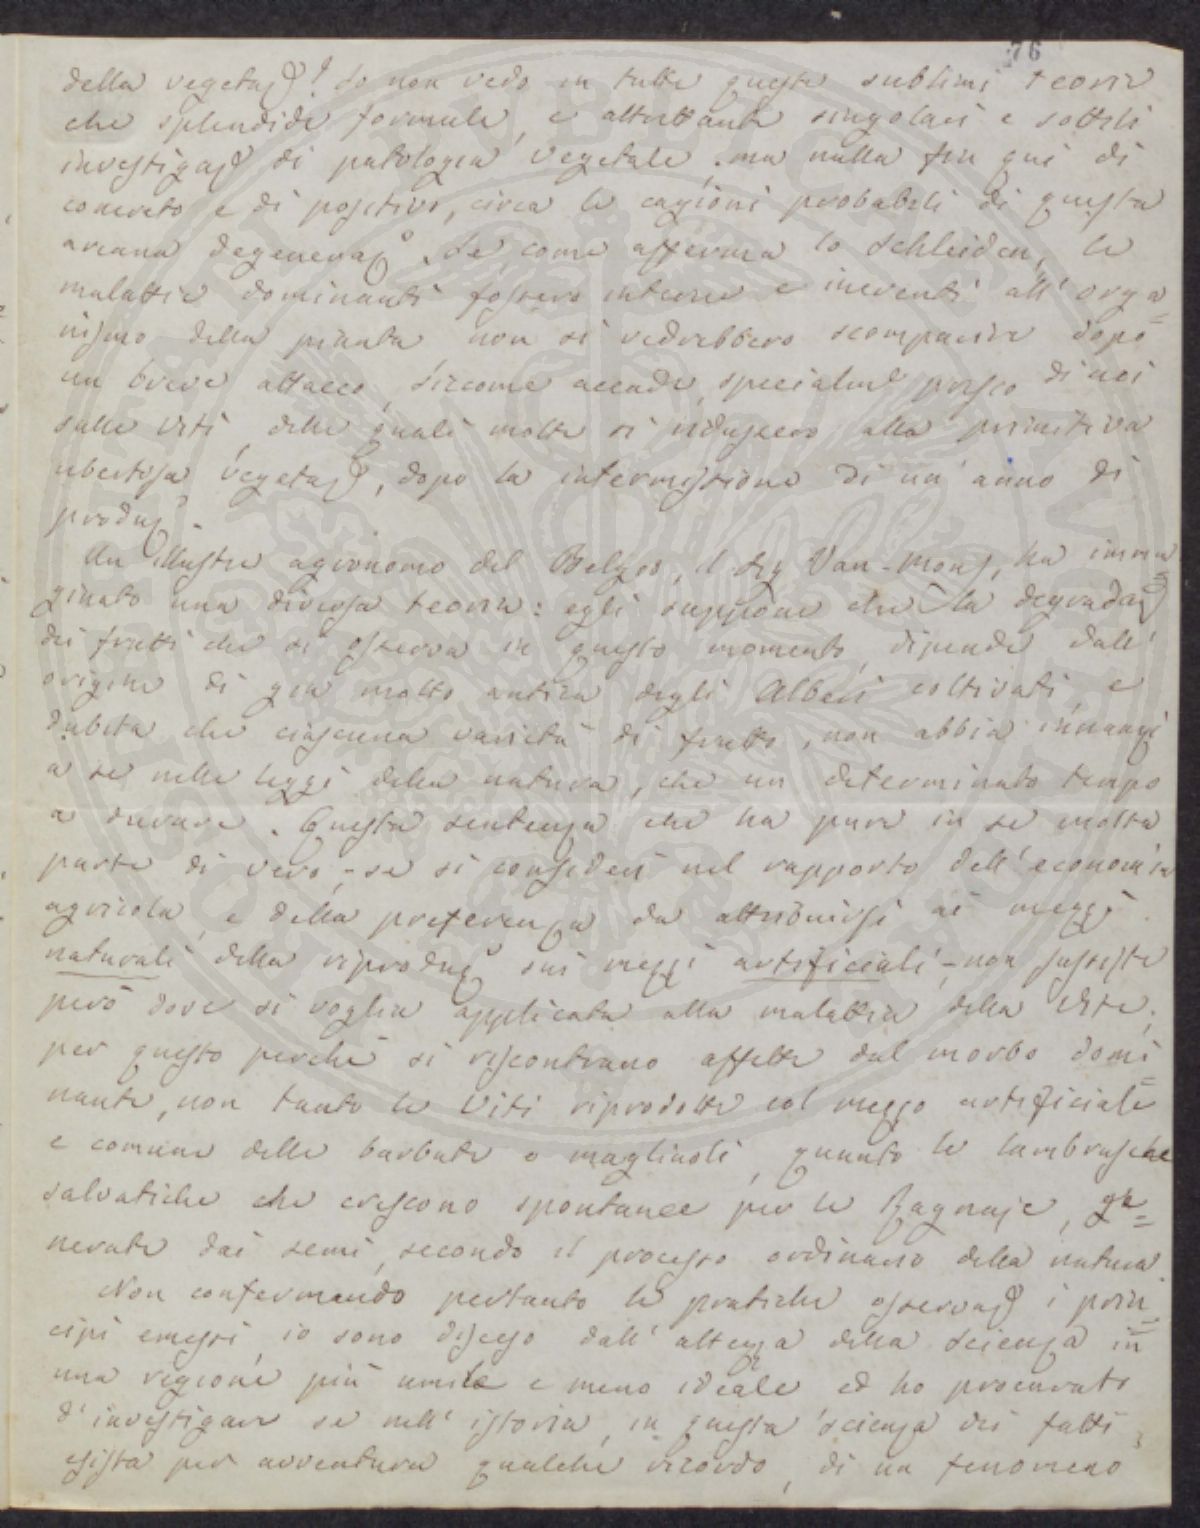 76
della vegetaz.e! Io non vedo in tutte queste sublimi teorie
che splendide formule, e altrettante singolari e sottili
investigaz.e di patologia vegetale, ma nulla fin qui di
concreto e di positivo, circa le cagioni probabili di questa
arcana degeneraz.e Se come afferma lo Schleiden, le
malattie dominanti fossero interne e inerenti all'orga=
nismo della pianta non si vedrebbero scomparire dopo
un breve attacco, siccome accade, specialm.e presso di noi
sulle viti, delle quali molte si ridussero alla primitiva
ubertosa vegetaz.e, dopo la intermissione di un'anno di
produz.e.
Un illustre agronomo del Belgio, il Sig. Van-Mons, ha imma
ginato una diversa teoria: egli suppone che la degradaz.e
dei frutti che si osserva in questo momento, dipende dall'
origine di già molto antica degli Alberi coltivati e
dubita che ciascuna varietà di frutto, non abbia innanzi
a se nelle leggi della natura, che un determinato tempo
a durare. Questa sentenza che ha pure in se molta
parte di vero, - se si consideri nel rapporto dell'economia
agricola, e della preferenza da attribuirsi ai mezzi
naturali della riproduz.e sui mezzi artificiali, - non sussiste
però dove si voglia applicata alla malattia della Vite;
per questo perchè si riscontrano affette dal morbo domi=
nante, non tanto le Viti riprodotte col mezzo artificiale
e comune delle barbate o magliuoli, quanto le lambrusche
salvatiche che crescono spontanee per le Ragnaje, ge=
nerate dai semi, secondo il processo ordinario della natura.
Non confermando pertanto le pratiche osservaz.e i prin=
cipi emessi, io sono disceso dall'altezza della scienza in
una regione più umile e meno ideale ed ho procurato
d'investigare se nell'istoria, in questa scienza dei fatti,
esista per avventura qualche ricordo, di un fenomeno